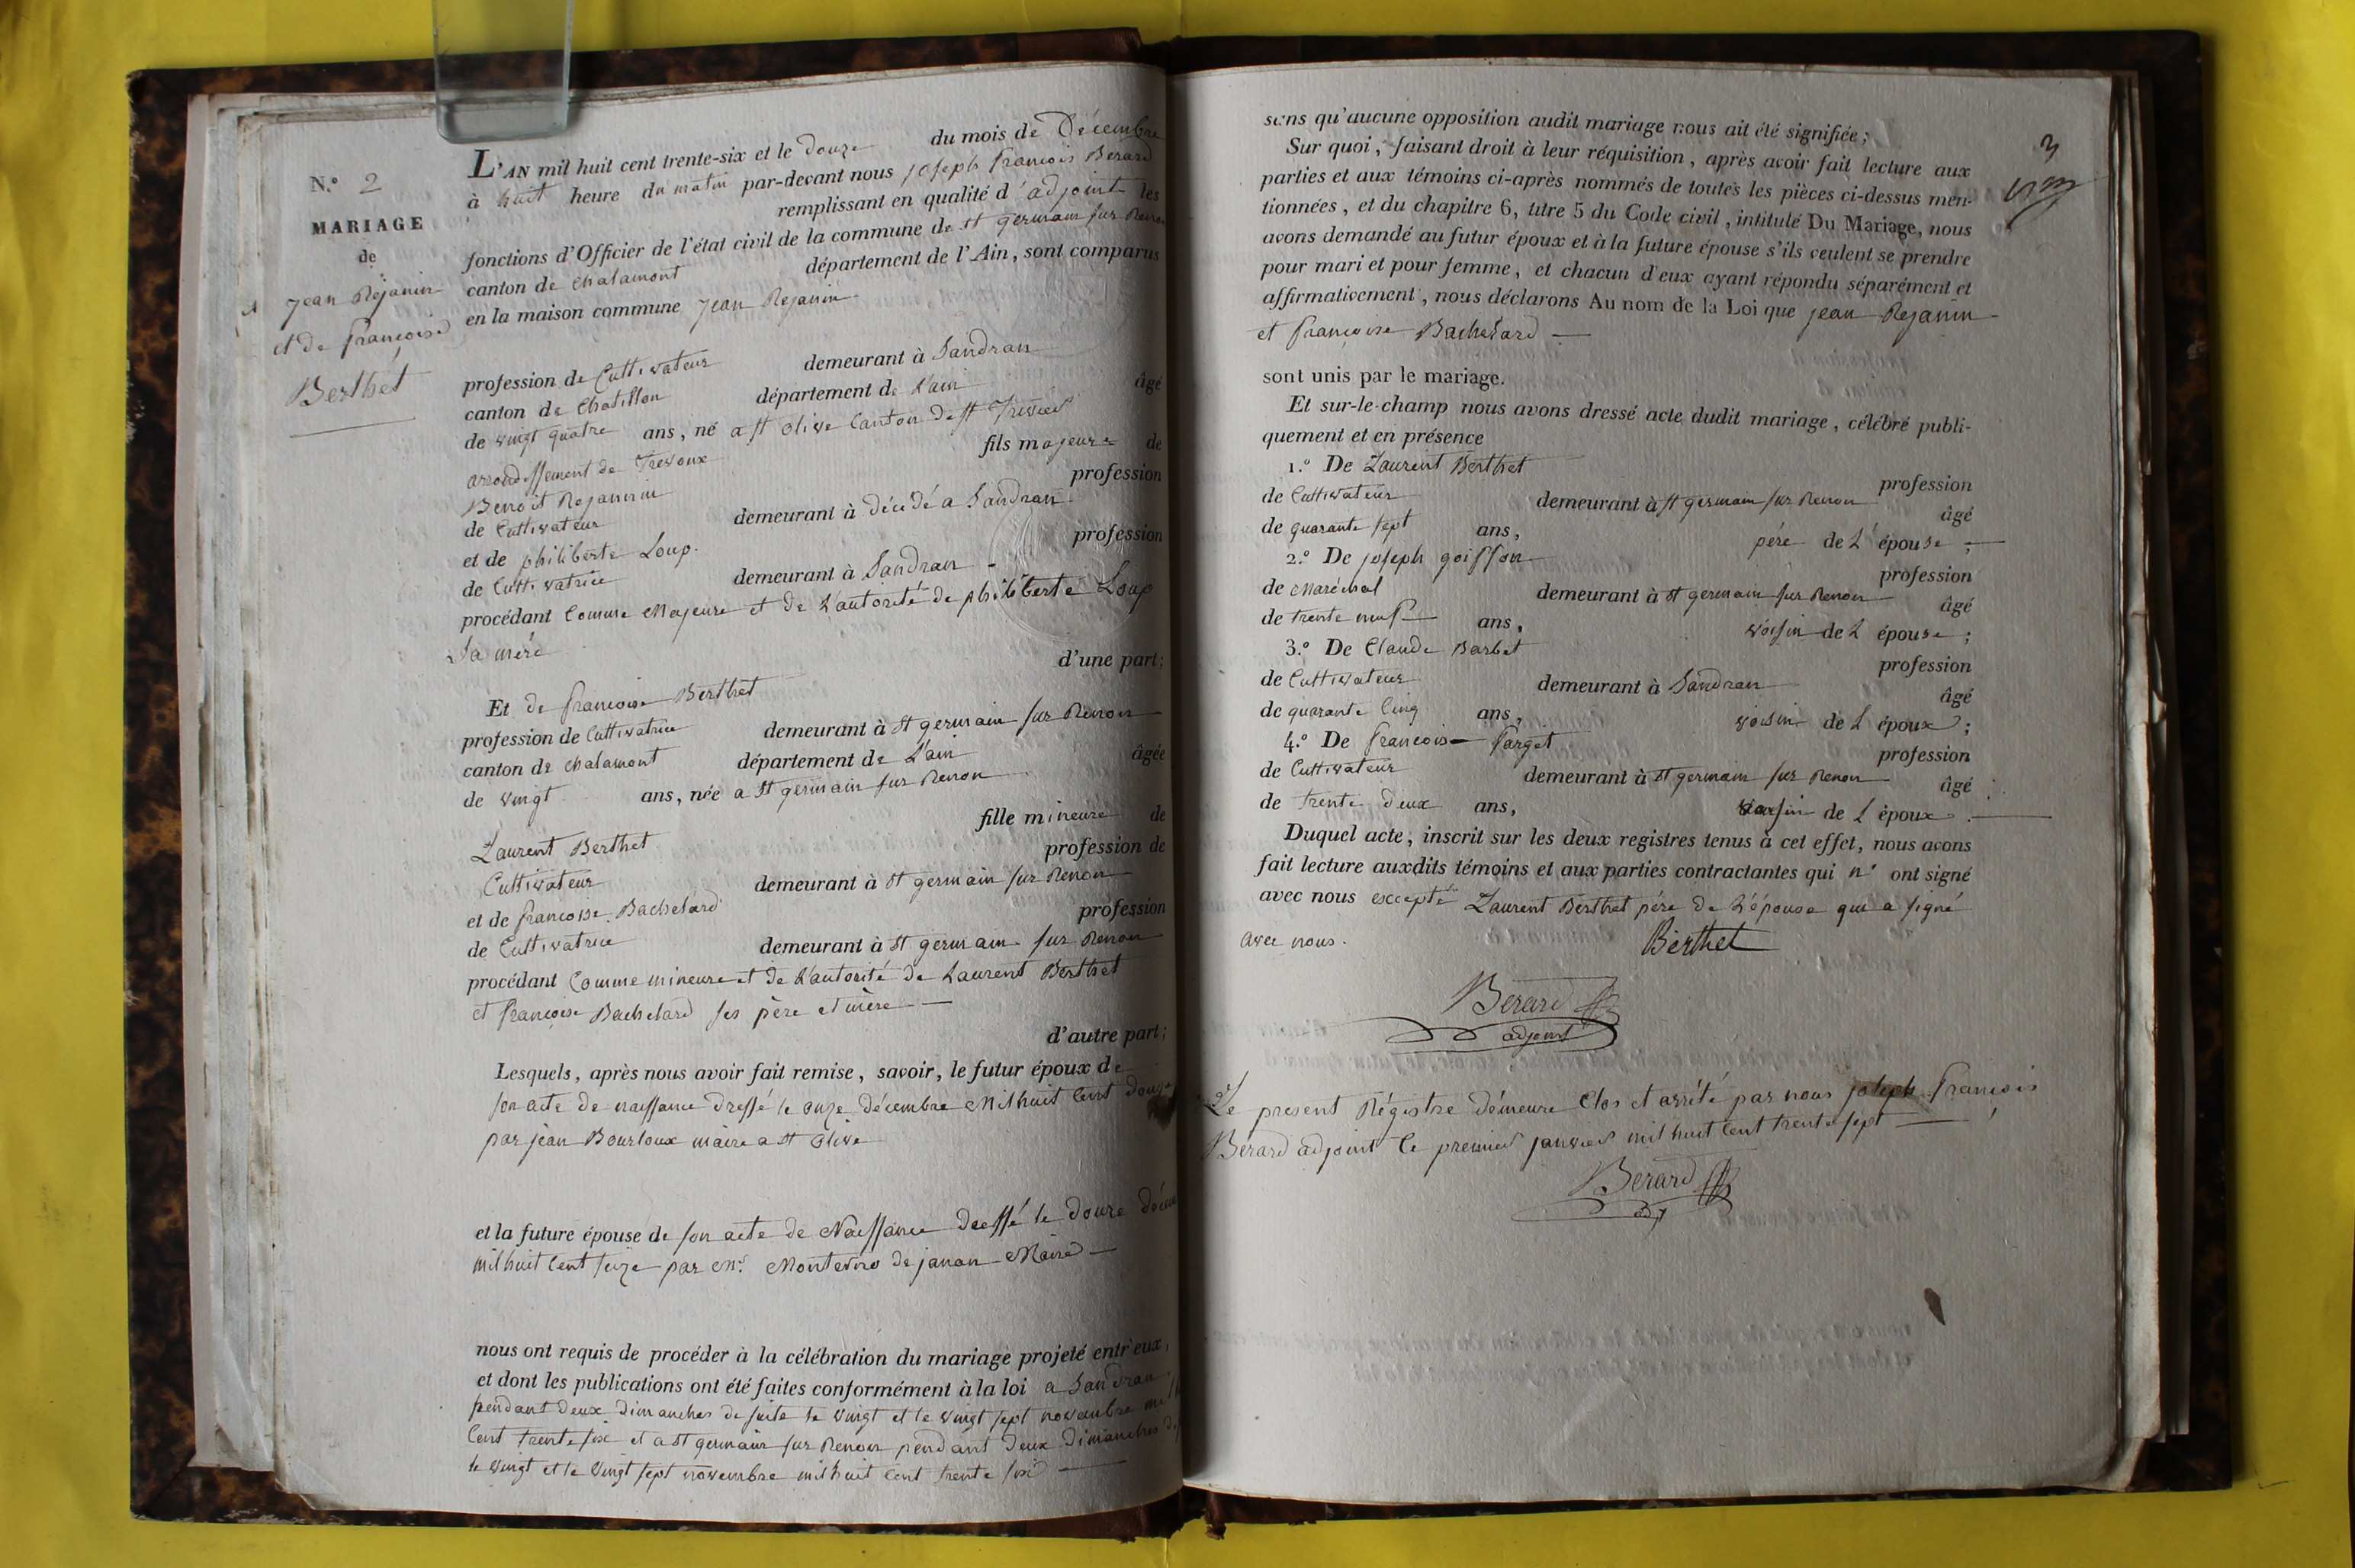 N.º 2
MARIAGE
de
jean Réjanin
et de françoise
Berthet
L'AN mil huit cent trente-six et le douze du mois de Décembre
à huit heure du matin par-devant nous joseph françois Berard
remplissant en qualité d'adjoint les
fonctions d'Officier de l'état civil de la commune de st germain sur Renon
canton de chalamont département de l'Ain, sont comparus
en la maison commune jean Rejanin
profession de Cultivateur demeurant à Sandran
canton de Chatillon département de L'ain âgé
de vingt quatre ans, né a st olive Canton de st Trivier
arrondissement de Trevoux fils majeure de
Benoit Rejannin profession
de Cultivateur demeurant à décédé a Sandran
et de philiberte Loup. profession
de Cultivatrice demeurant à Sandran
procédant Comme Majeure et de L'autorité de philiberte Loup
Sa mére
d'une part;
Et de francoise Berthet
profession de Cultivatrice demeurant à st germain sur Renon
canton de chalamont département de L'ain âgée
de vingt ans, née a st germain sur Renon
fille mineure de
Laurent Berthet profession de
Cultivateur demeurant à st germain sur Renon
et de francoise Bachelard profession
de Cultivatrice demeurant à st germain sur Renon
procédant Comme mineure et de L'autorité de Laurent Berthet
et françoise Bachelard ses père et mère
d'autre part;
Lesquels, après nous avoir fait remise, savoir, le futur époux de
son acte de naissance dressé le onze décembre Mil huit Cent douze
par jean Bourloux maire a st olive
et la future épouse de son acte de Naissance dressé le douze
mil huit Cent seize par Mr. de janan Maire
nous ont requis de procéder à la célébration du mariage projeté entr'eux,
et dont les publications ont été faites conformément à la loi a Sandran
pendant deux dimanches de suite le vingt et le vingt sept novembre
Cent trente six et a st germain sur Renon pendant deux dimanches
le vingt et le vingt sept novembre mil huit Cent trente six
3
sans qu'aucune opposition audit mariage nous ait été signifiée;
Sur quoi, faisant droit à leur réquisition, après avoir fait lecture aux
parties et aux témoins ci-après nommés de toutes les pièces ci-dessus men-
tionnées, et du chapitre 6, titre 5 du Code civil, intitulé Du Mariage, nous
avons demandé au futur époux et à la future épouse s'ils veulent se prendre
pour mari et pour femme, et chacun d'eux ayant répondu séparément et
affirmativement, nous déclarons Au nom de la Loi que jean Rejanin
et françoise Bachelard
sont unis par le mariage.
Et sur-le-champ nous avons dressé acte dudit mariage, célébré publi-
quement et en présence
1.º De Laurent Berthet profession
de Cultivateur demeurant à st germain sur Renon âgé
de quarante sept ans, pére de L'épouse;
2.º De joseph goiffon profession
de Maréchal demeurant à st germain sur Renon âgé
de trente neuf ans, voisin de L'épouse;
3.º De Claude Barbet profession
de Cultivateur demeurant à Sandran âgé
de quarante Cinq ans, voisin de L'époux;
4.º De francois farget profession
de Cultivateur demeurant à st germain sur Renon âgé
de trente deux ans, voisin de L'époux.
Duquel acte, inscrit sur les deux registres tenus à cet effet, nous avons
fait lecture auxdits témoins et aux parties contractantes qui n' ont signé
avec nous excepté Laurent Berthet pére de L'épouse qui a signé
avec nous.
Berthet
Berard
adjoint
Le present Régistre démeure Clos et arrété par nous joseph françois
Berard adjoint le premier janvier mil huit Cent trente sept
Berard
adj